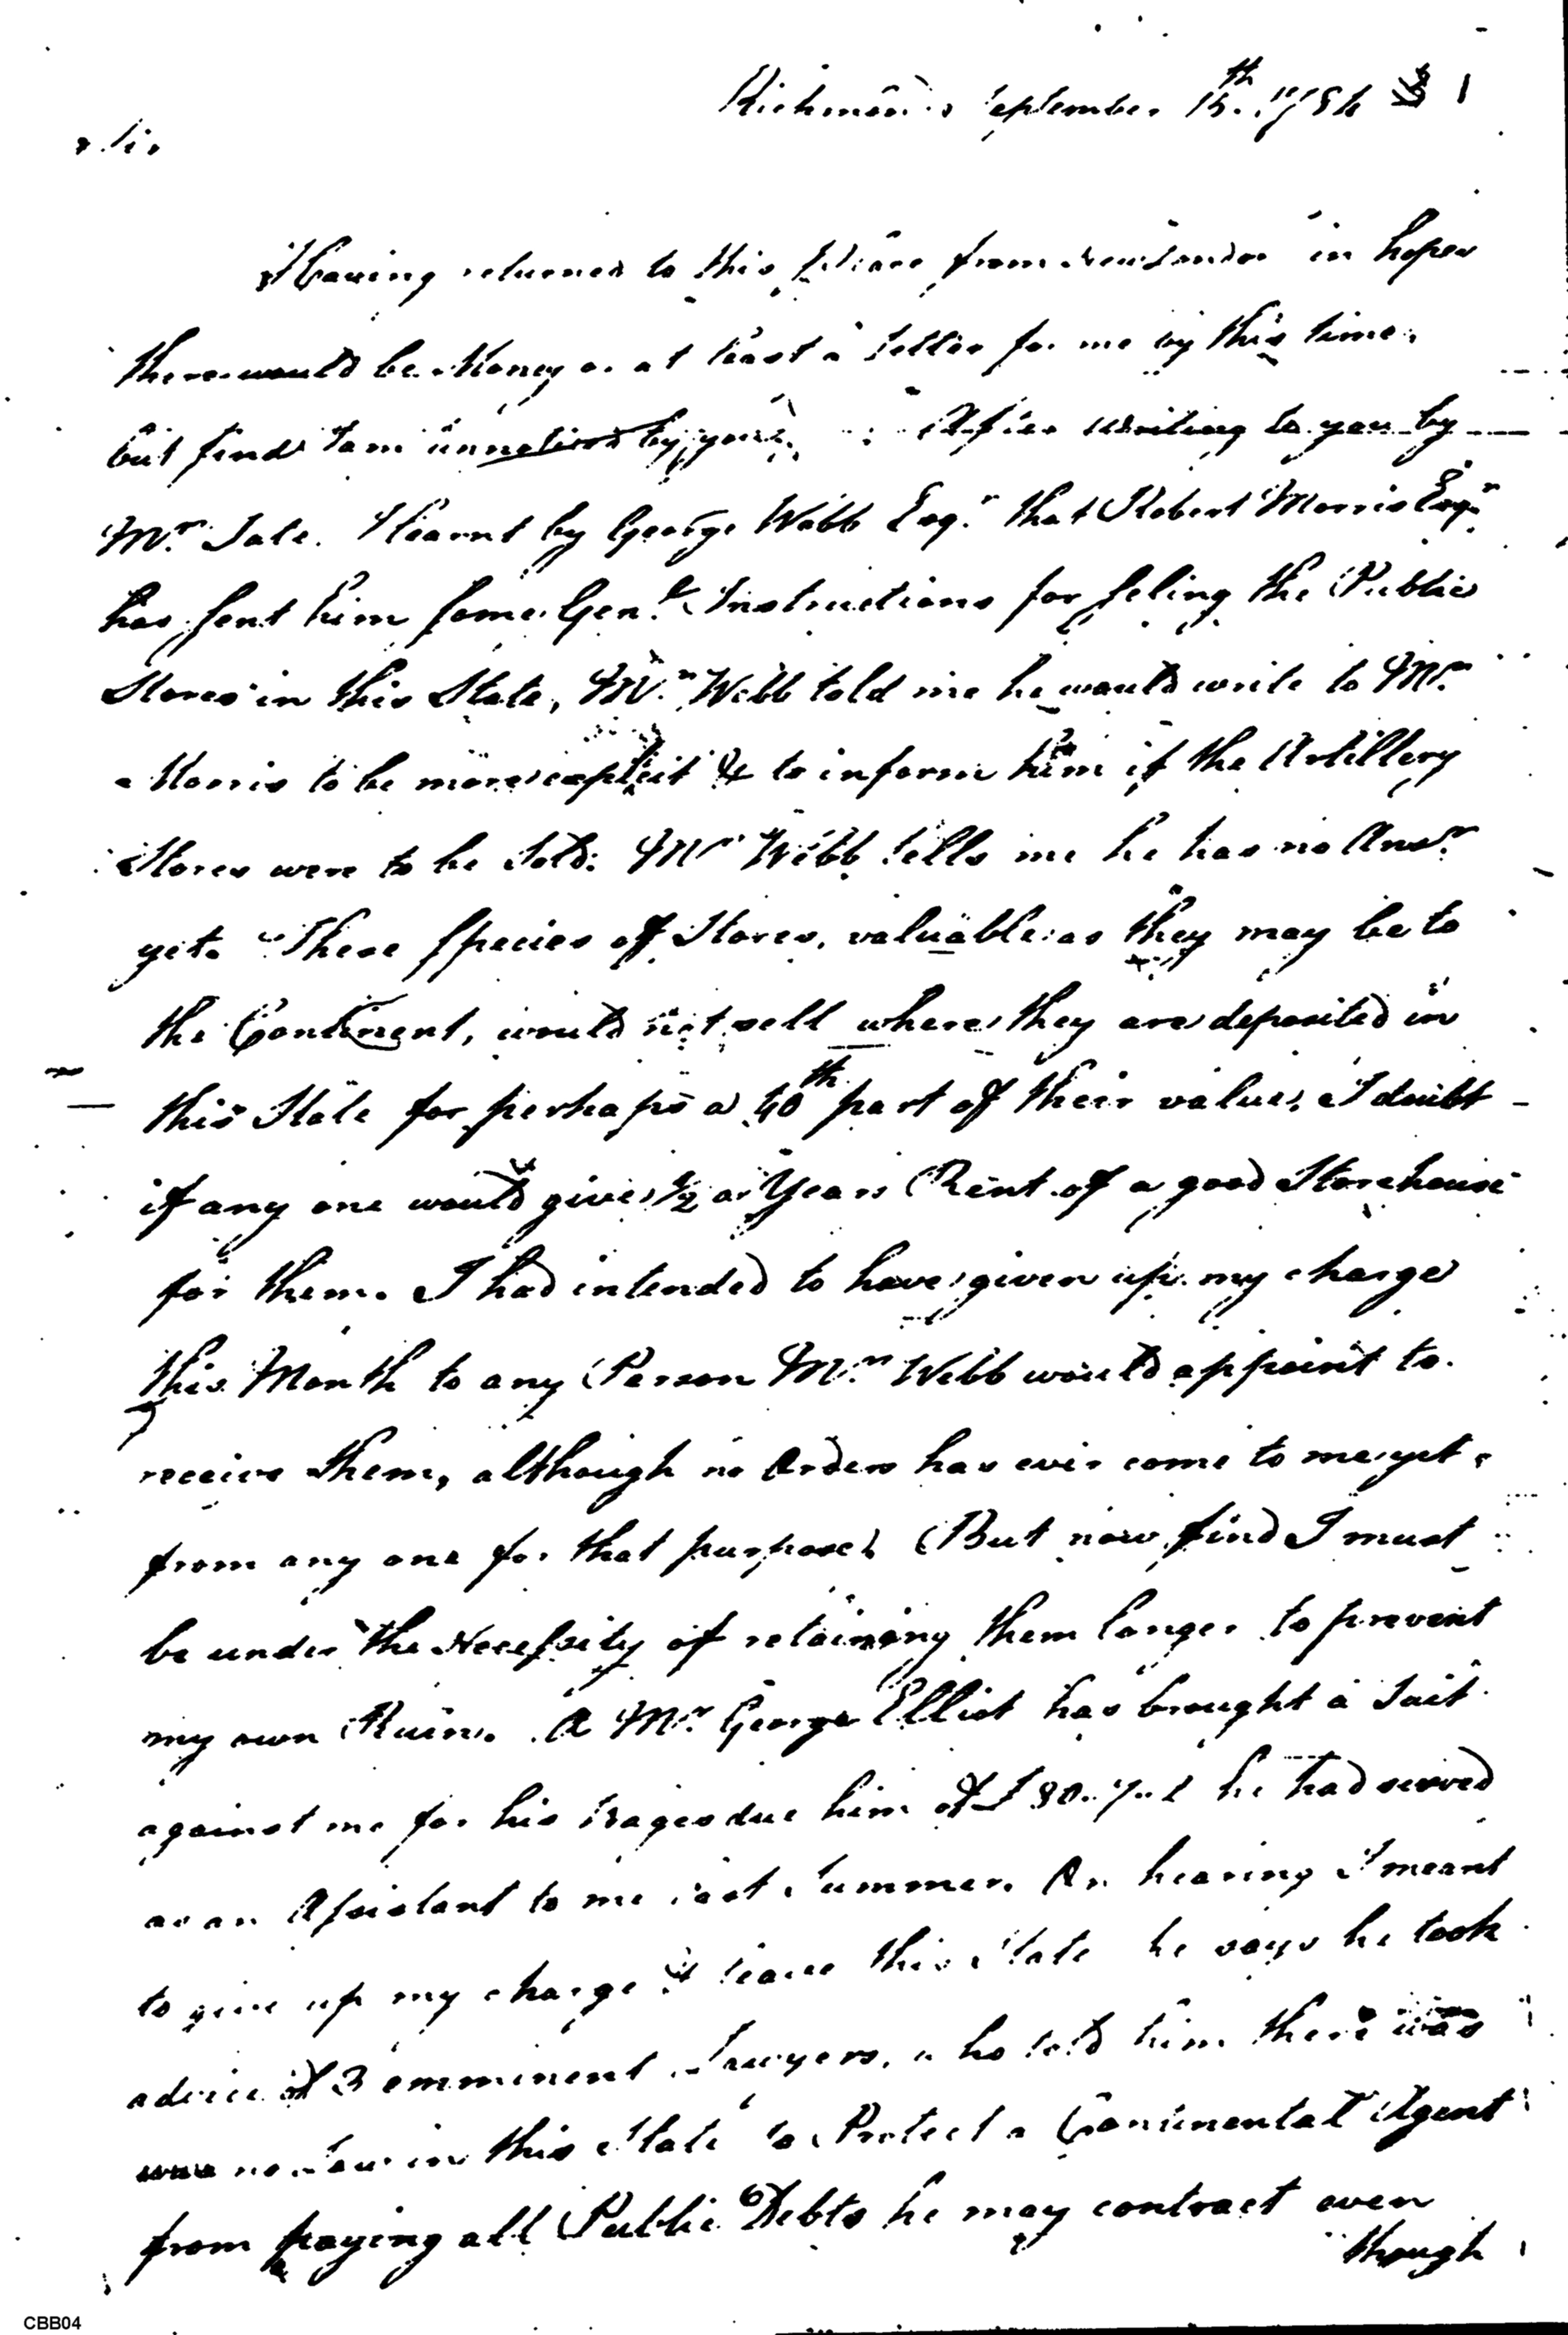 Richmond September 15.th 1784
Sir
Having returned to this place from New London in hopes
there would be Money or at least a Letter for me by this time,
but find I am unnoticed by you. After writing to you by
Mr. Tate. I learnt by George Webb Esqr. that Robert Morris Esqr.
has sent him some Genl. Instructions for seling the Public
Stores in this State, Mr. Webb told me he would write to Mr.
Morris to be more explicit & to inform him if the Artillery
Stores were to be Sold: Mr Webb tells me he has no Answr.
yet. These species of Stores, valuable as they may be to
the Continent, would not sell where they are deposited in
this State for perhaps a 40th part of their value, I doubt
if any one would give 1/2 a Years Rent of a good Storehouse
for them. I had intended to have given up my charge
this Month to any Person Mr. Webb would appoint to
receive them, although no Orders has ever come to me yet
from any one for that purpose. But now find I must
be under the Necessity of retaining them longer to prevent
my own Ruin. A Mr. George Elliot has brought a Suit
against me for his Wages due him of £ 80.. 7.. 1 he had served
as an Assistant to me last Summer. On hearing I meant
to give up my charge & leave this State he says he took
advice of 3 emminent Lawyers, who told him there was
no Law in this State to Protect a Continental Agent
from paying all Public Debts he may contract even
though
CBB04